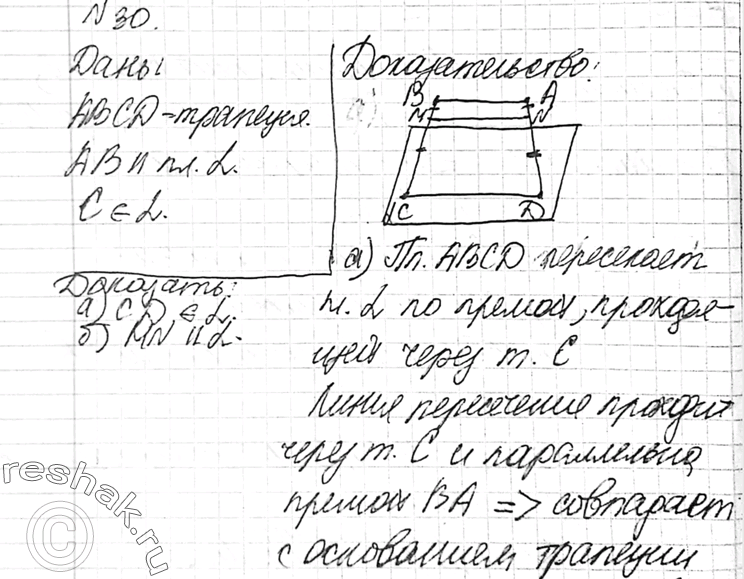 N 30.
Дано:
ABCD-трапеция.
AB || пл. α.
C ∈ α.
Доказать:
а) CD ∈ α.
б) MN || α.
Доказательство:
а)
B A
M N
C D
α
а) Пл. ABCD пересекает
пл. α по прямой, проходя-
щей через т. C
Линия пересечения проходит
через т. C и параллельна
прямой BA => совпадает
с основанием трапеции
reshak.ru
©